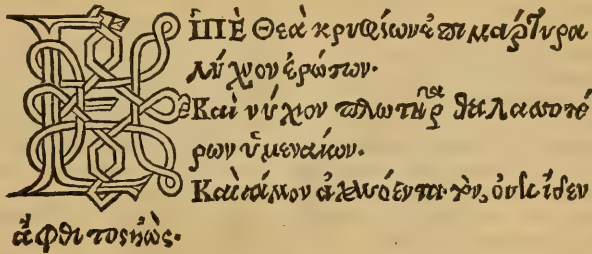 ΕἸΠῈ Θεὰ κρυφίων ἐπιμάρτυρα
λύχνον ἐρώτων·
Καὶ νύχιον πλωτῆρα θαλασσοπό
ρων ὑμεναίων.
Καὶ γάμον ἀχλυόεντα τὸν οὐκ εἶδεν
ἄφθιτος ἠώς.